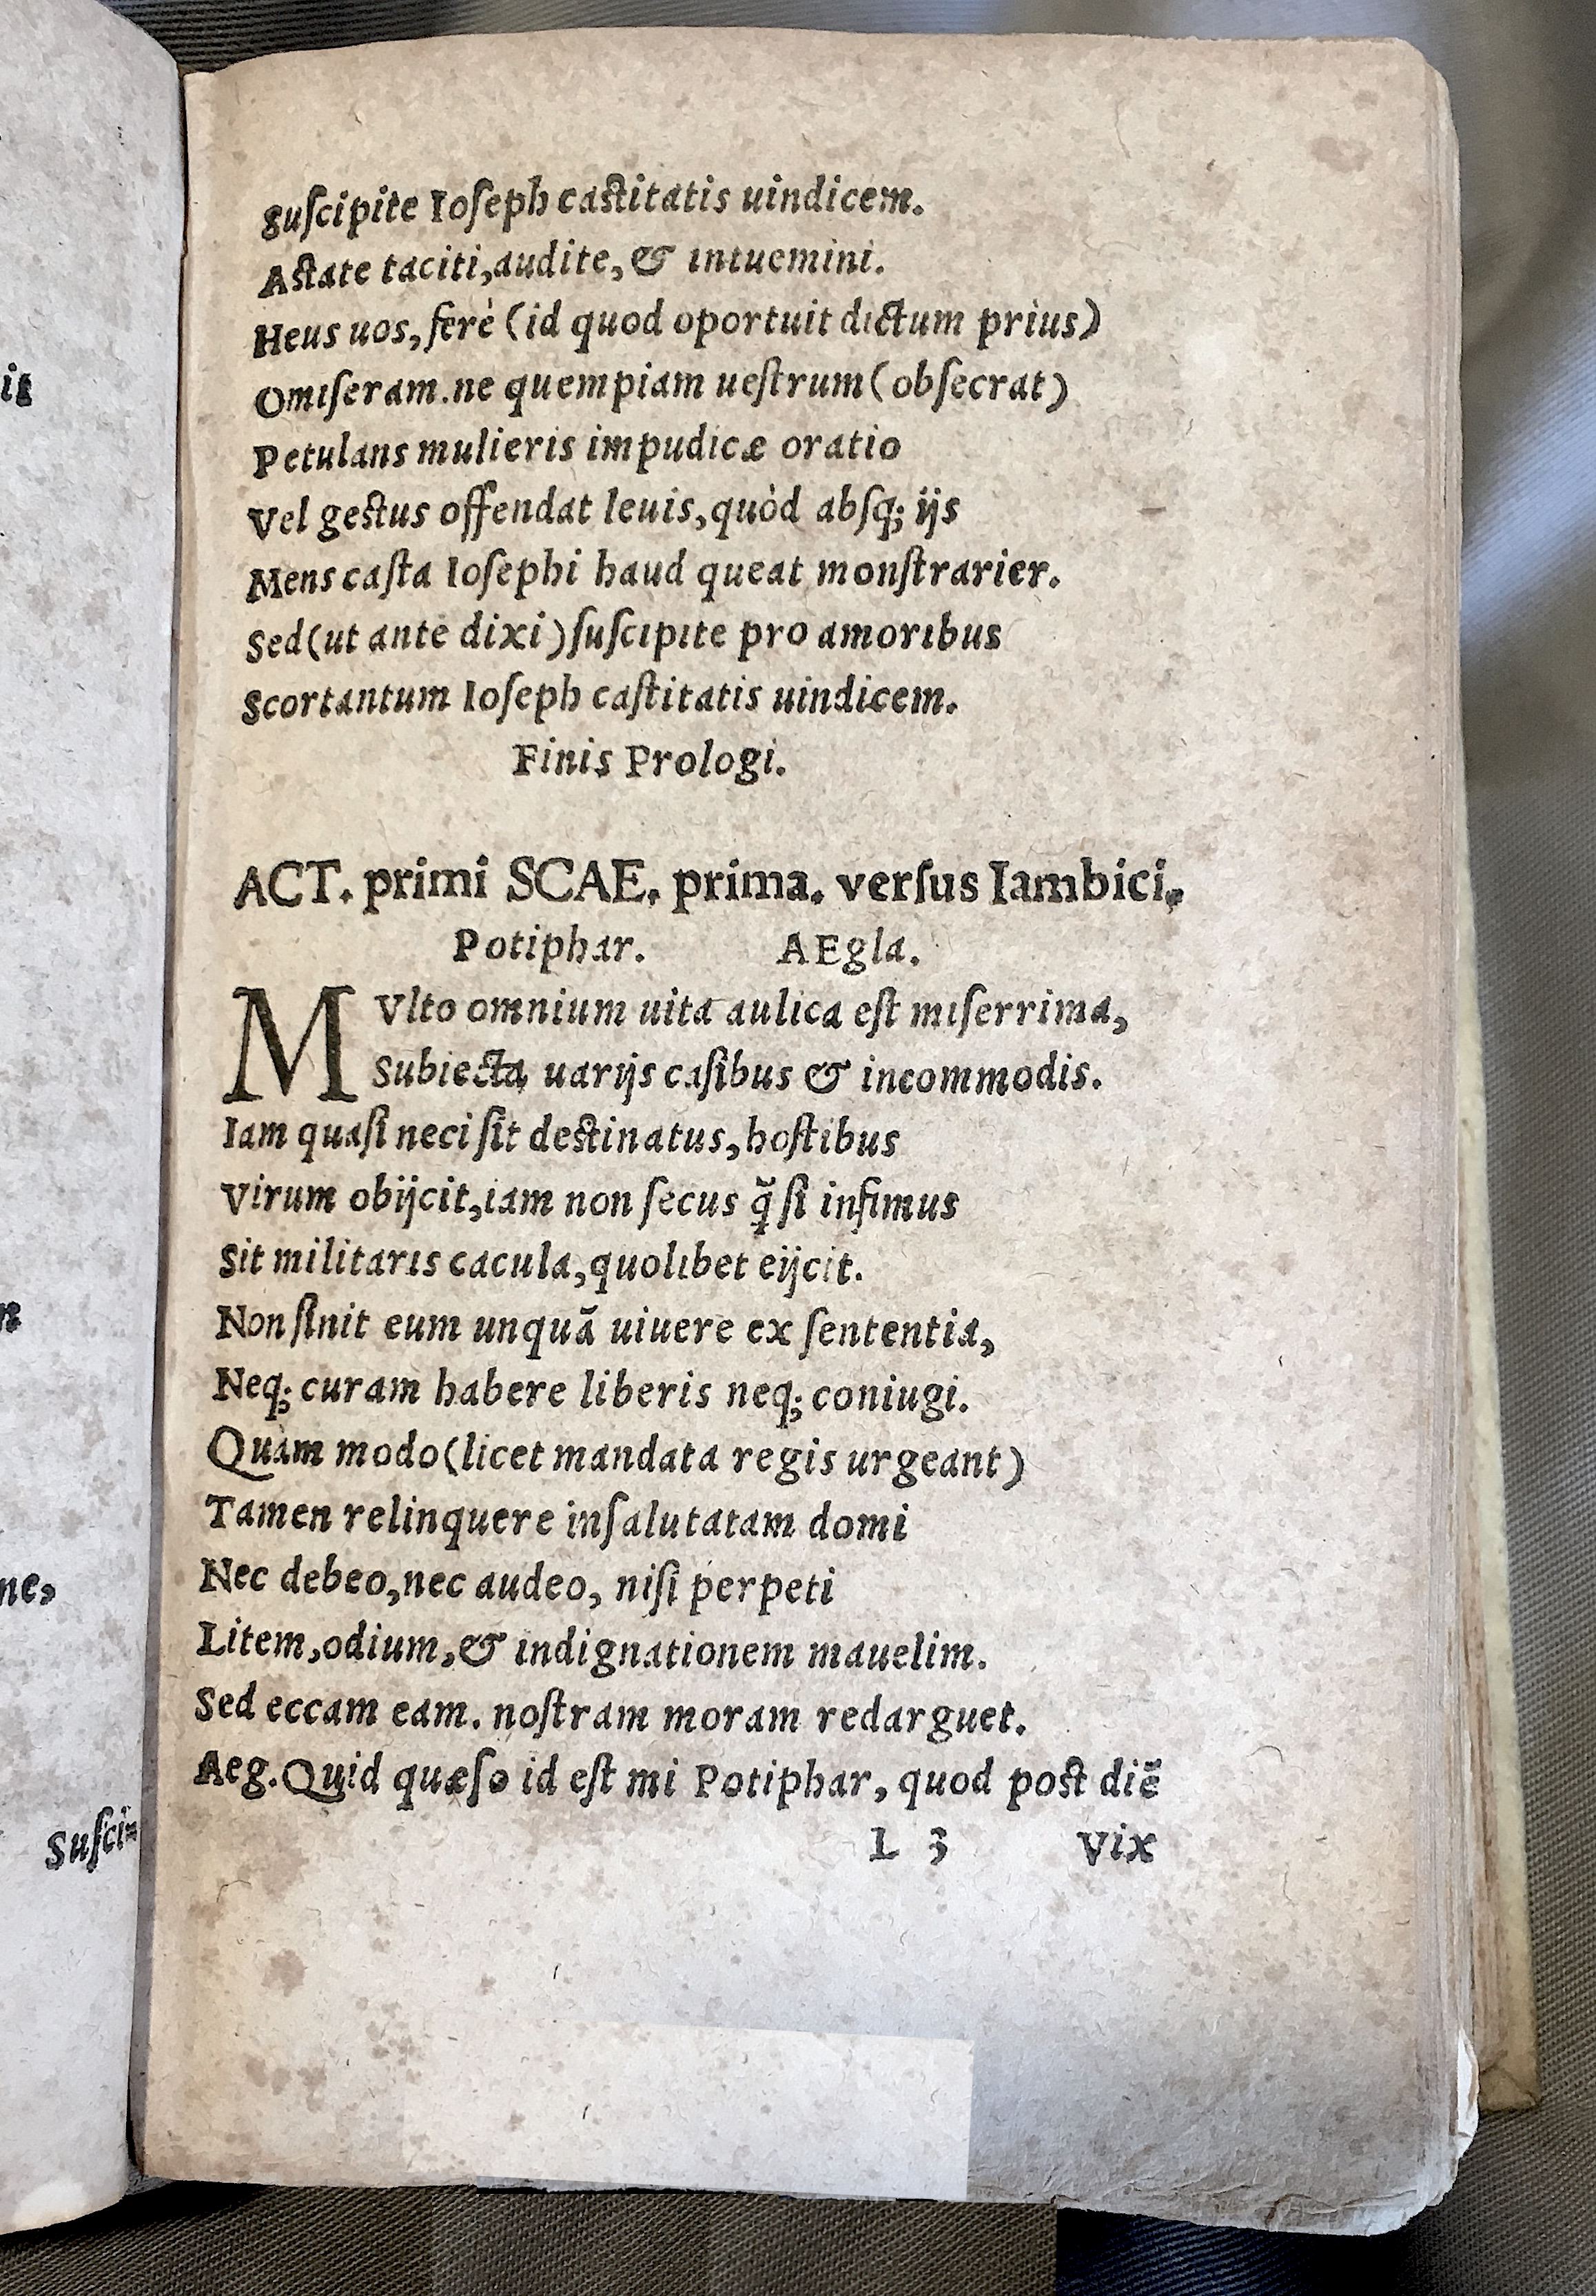 it
n
ne,
Suſci
guſcipite Ioſeph caſtitatis uindicem.
Aſtate taciti,audite,& intuemini.
Heus uos, ferè (id quod oportuit dictum priùs)
Omiſeram.ne quempiam ueſtrum (obſecrat)
Petulans mulieris impudicæ oratio
Vel geſtus offendat leuis,quòd abſq; ijs
Mens caſta Ioſephi haud queat monſtrarier.
Sed (ut ante dixi) ſuſcipite pro amoribus
Scortantum Ioſeph caſtitatis uindicem.
Finis Prologi.
ACT. primi SCAE. prima. verſus Iambici.
Potiphar. AEgla.
MVlto omnium uita aulica eſt miſerrima,
Subiecta uarijs caſibus & incommodis.
Iam quaſi neci ſit deſtinatus,hoſtibus
Virum obijcit,iam non ſecus q̃ ſi infimus
Sit militaris cacula,quolibet eijcit.
Non ſinit eum unquã uiuere ex ſententia,
Neq; curam habere liberis neq; coniugi.
Quam modo (licet mandata regis urgeant)
Tamen relinquere inſalutatam domi
Nec debeo,nec audeo, niſi perpeti
Litem,odium,& indignationem mauelim.
Sed eccam eam. noſtram moram redarguet.
Aeg.Quid quæſo id eſt mi Potiphar, quod poſt diẽ
L 3 Vix